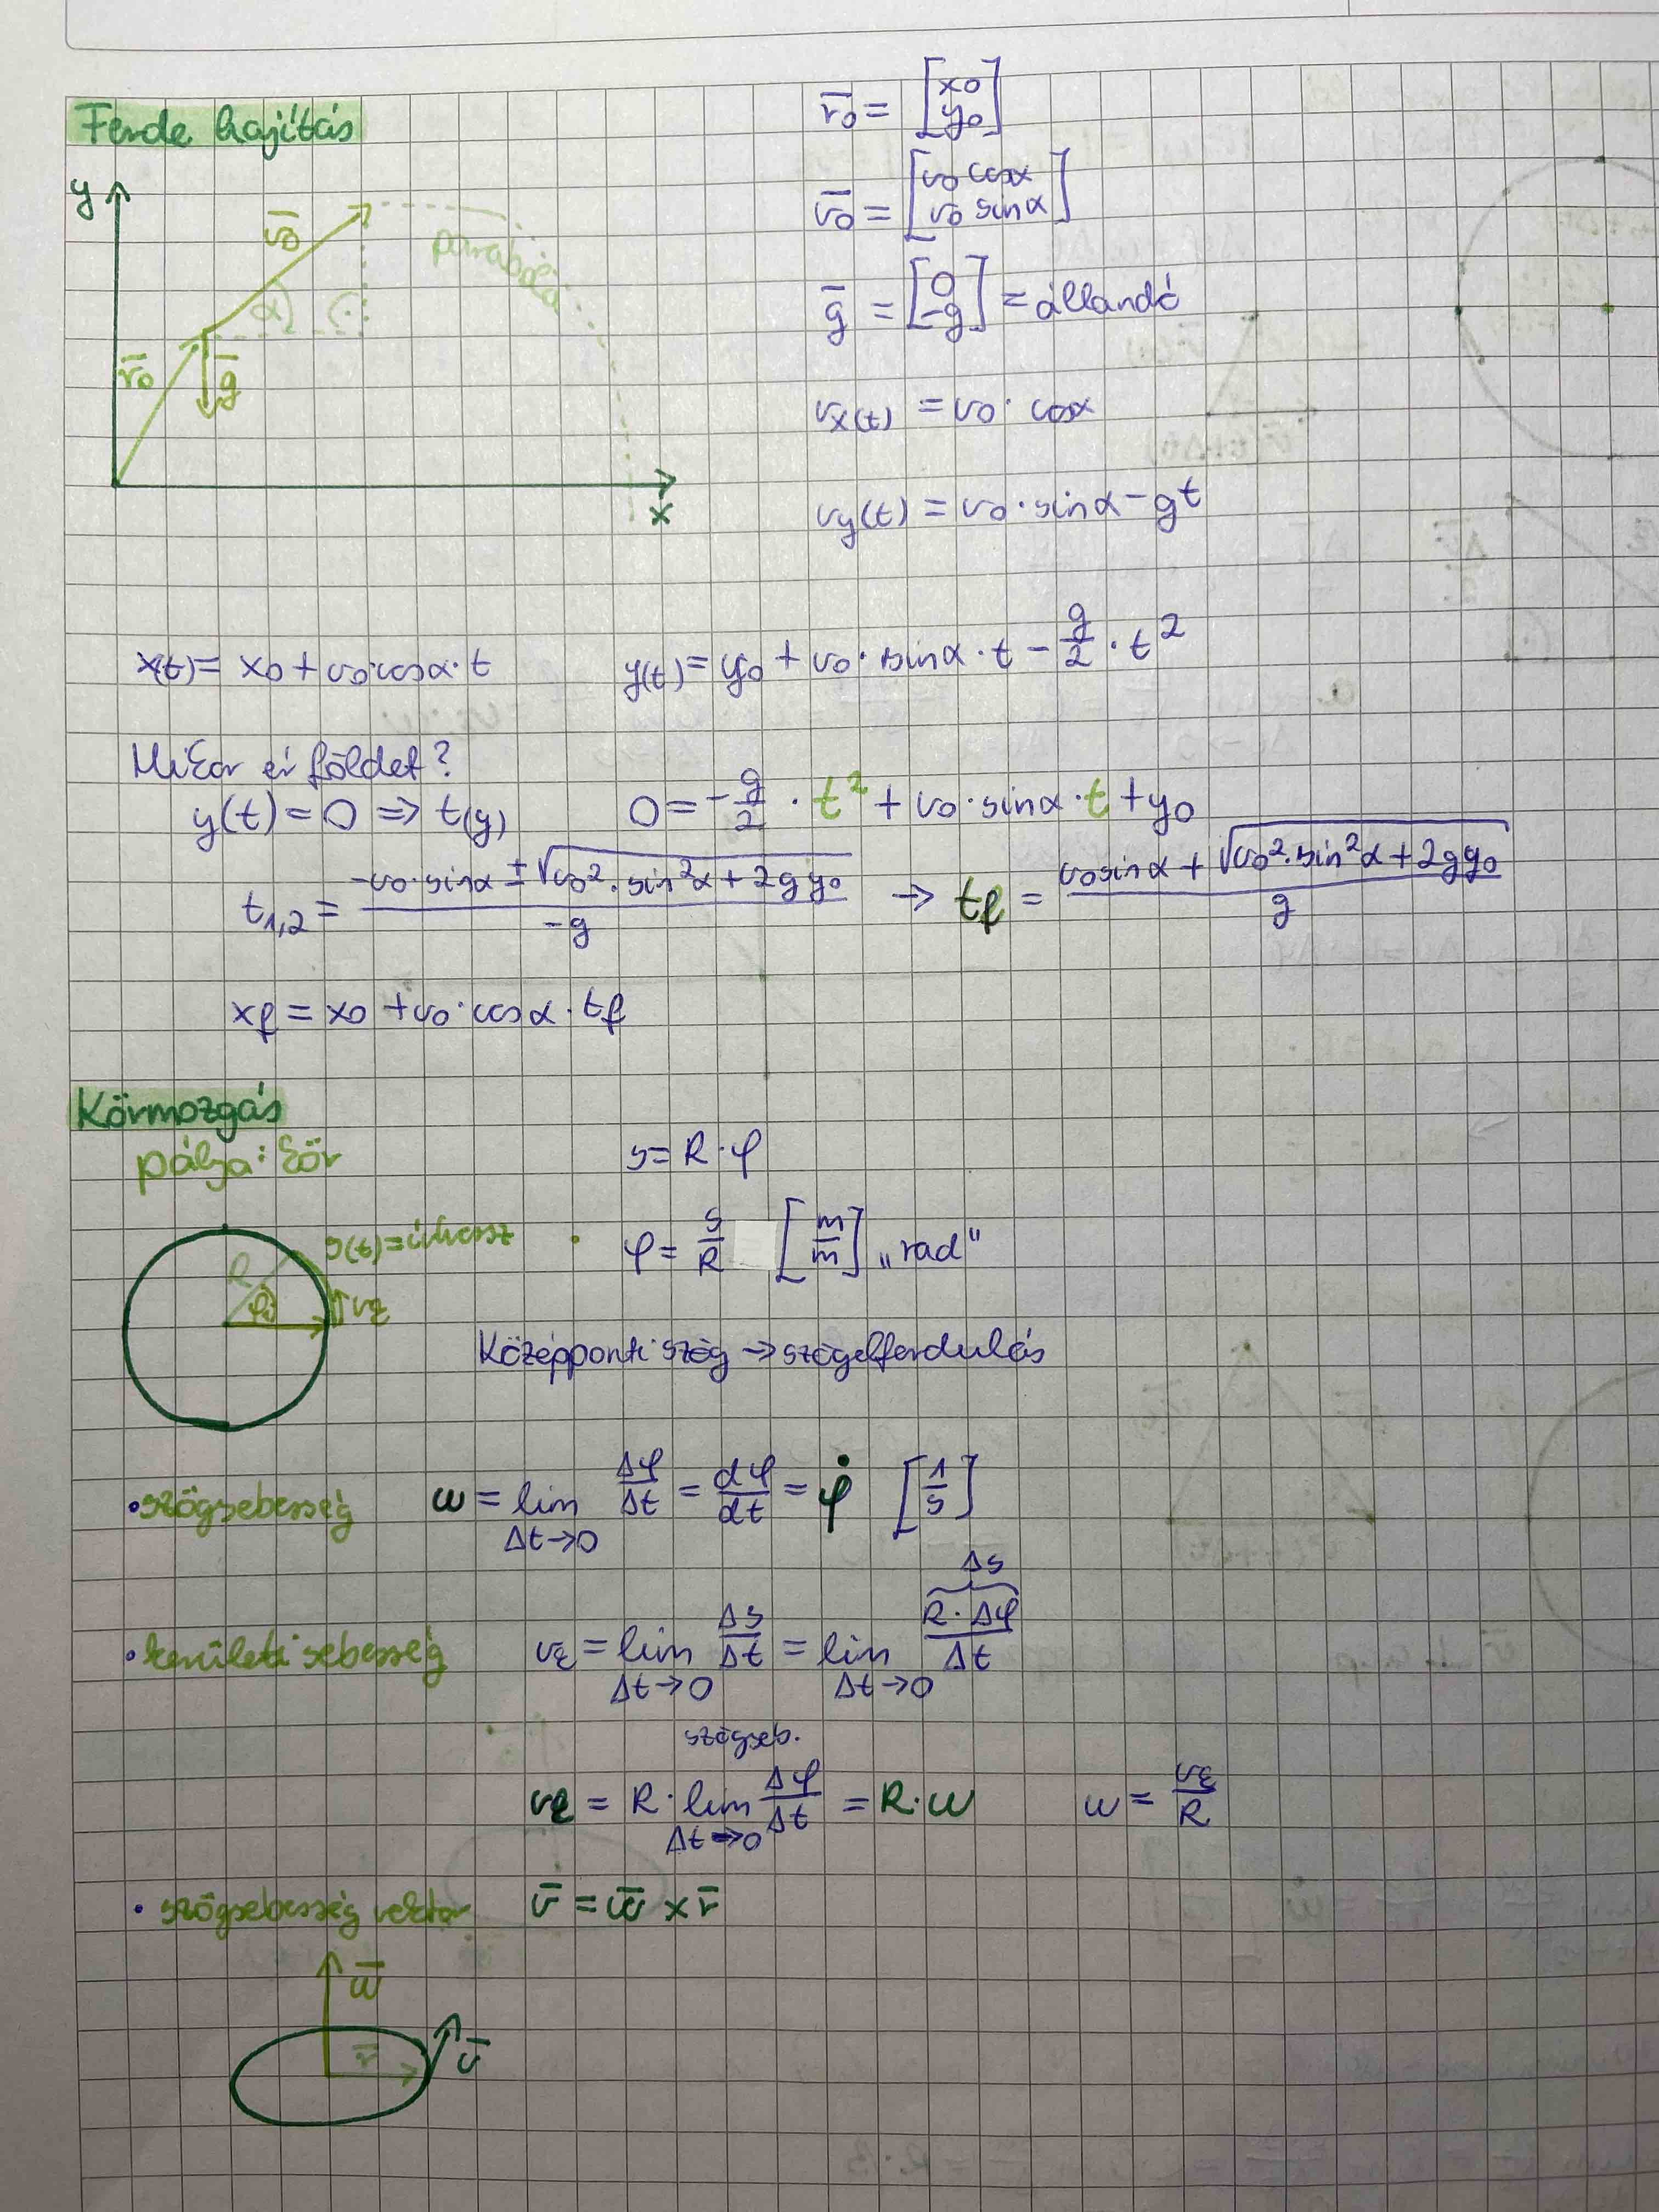 Ferde hajítás
r̄₀ = [x₀ y₀]
v̄₀ = [v₀ cosα v₀ sinα]
ḡ = [0 -g] = állandó
y
v̄₀
parabola
α
r̄₀
ḡ
x
vx(t) = v₀ · cosα
vy(t) = v₀ · sinα - gt
x(t) = x₀ + v₀·cosα·t
y(t) = y₀ + v₀ · sinα · t - g/2 · t²
Mikor ér földet?
y(t) = 0 ⇒ t(y)
0 = -g/2 · t² + v₀ · sinα · t + y₀
t₁,₂ = (-v₀·sinα ± √(v₀²·sin²α + 2gy₀)) / -g → tf = (v₀sinα + √(v₀²·sin²α + 2gy₀)) / g
xf = x₀ + v₀·cosα · tf
Körmozgás
pálya: kör
s = R · φ
s(t) = ívhossz
R
φ
vk
φ = s/R = [m/m] „rad"
Középponti szög → szögelfordulás
• szögsebesség ω = lim Δt→0 Δφ/Δt = dφ/dt = φ̇ [1/s]
• kerületi sebesség vk = lim Δt→0 Δs/Δt = lim Δt→0 R·Δφ/Δt
Δs
szögseb.
vk = R · lim Δt→0 Δφ/Δt = R·ω
ω = vk/R
• szögsebesség vektor v̄ = ω̄ × r̄
ω̄
r̄
v̄